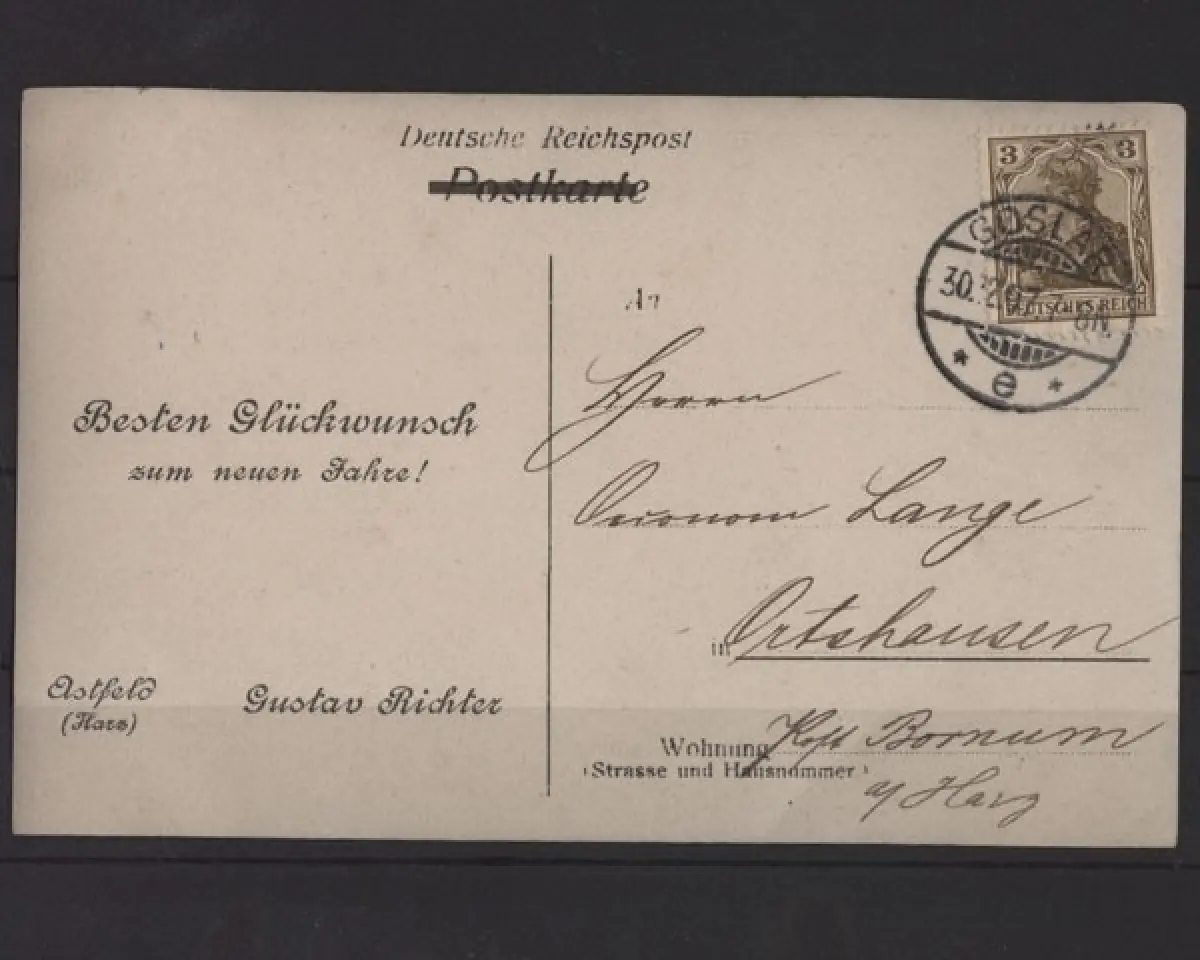 Deutsche Reichspost
Postkarte
3 3
DEUTSCHES REICH
GOSLAR
30.12.07.7-8N.
* e *
An
Besten Glückwunsch
zum neuen Jahre!
Herrn
Oeconom Lange
in Ortshausen
Astfeld
(Harz)
Gustav Richter
Wohnung
(Strasse und Hausnummer)
Bornum
a/ Harz